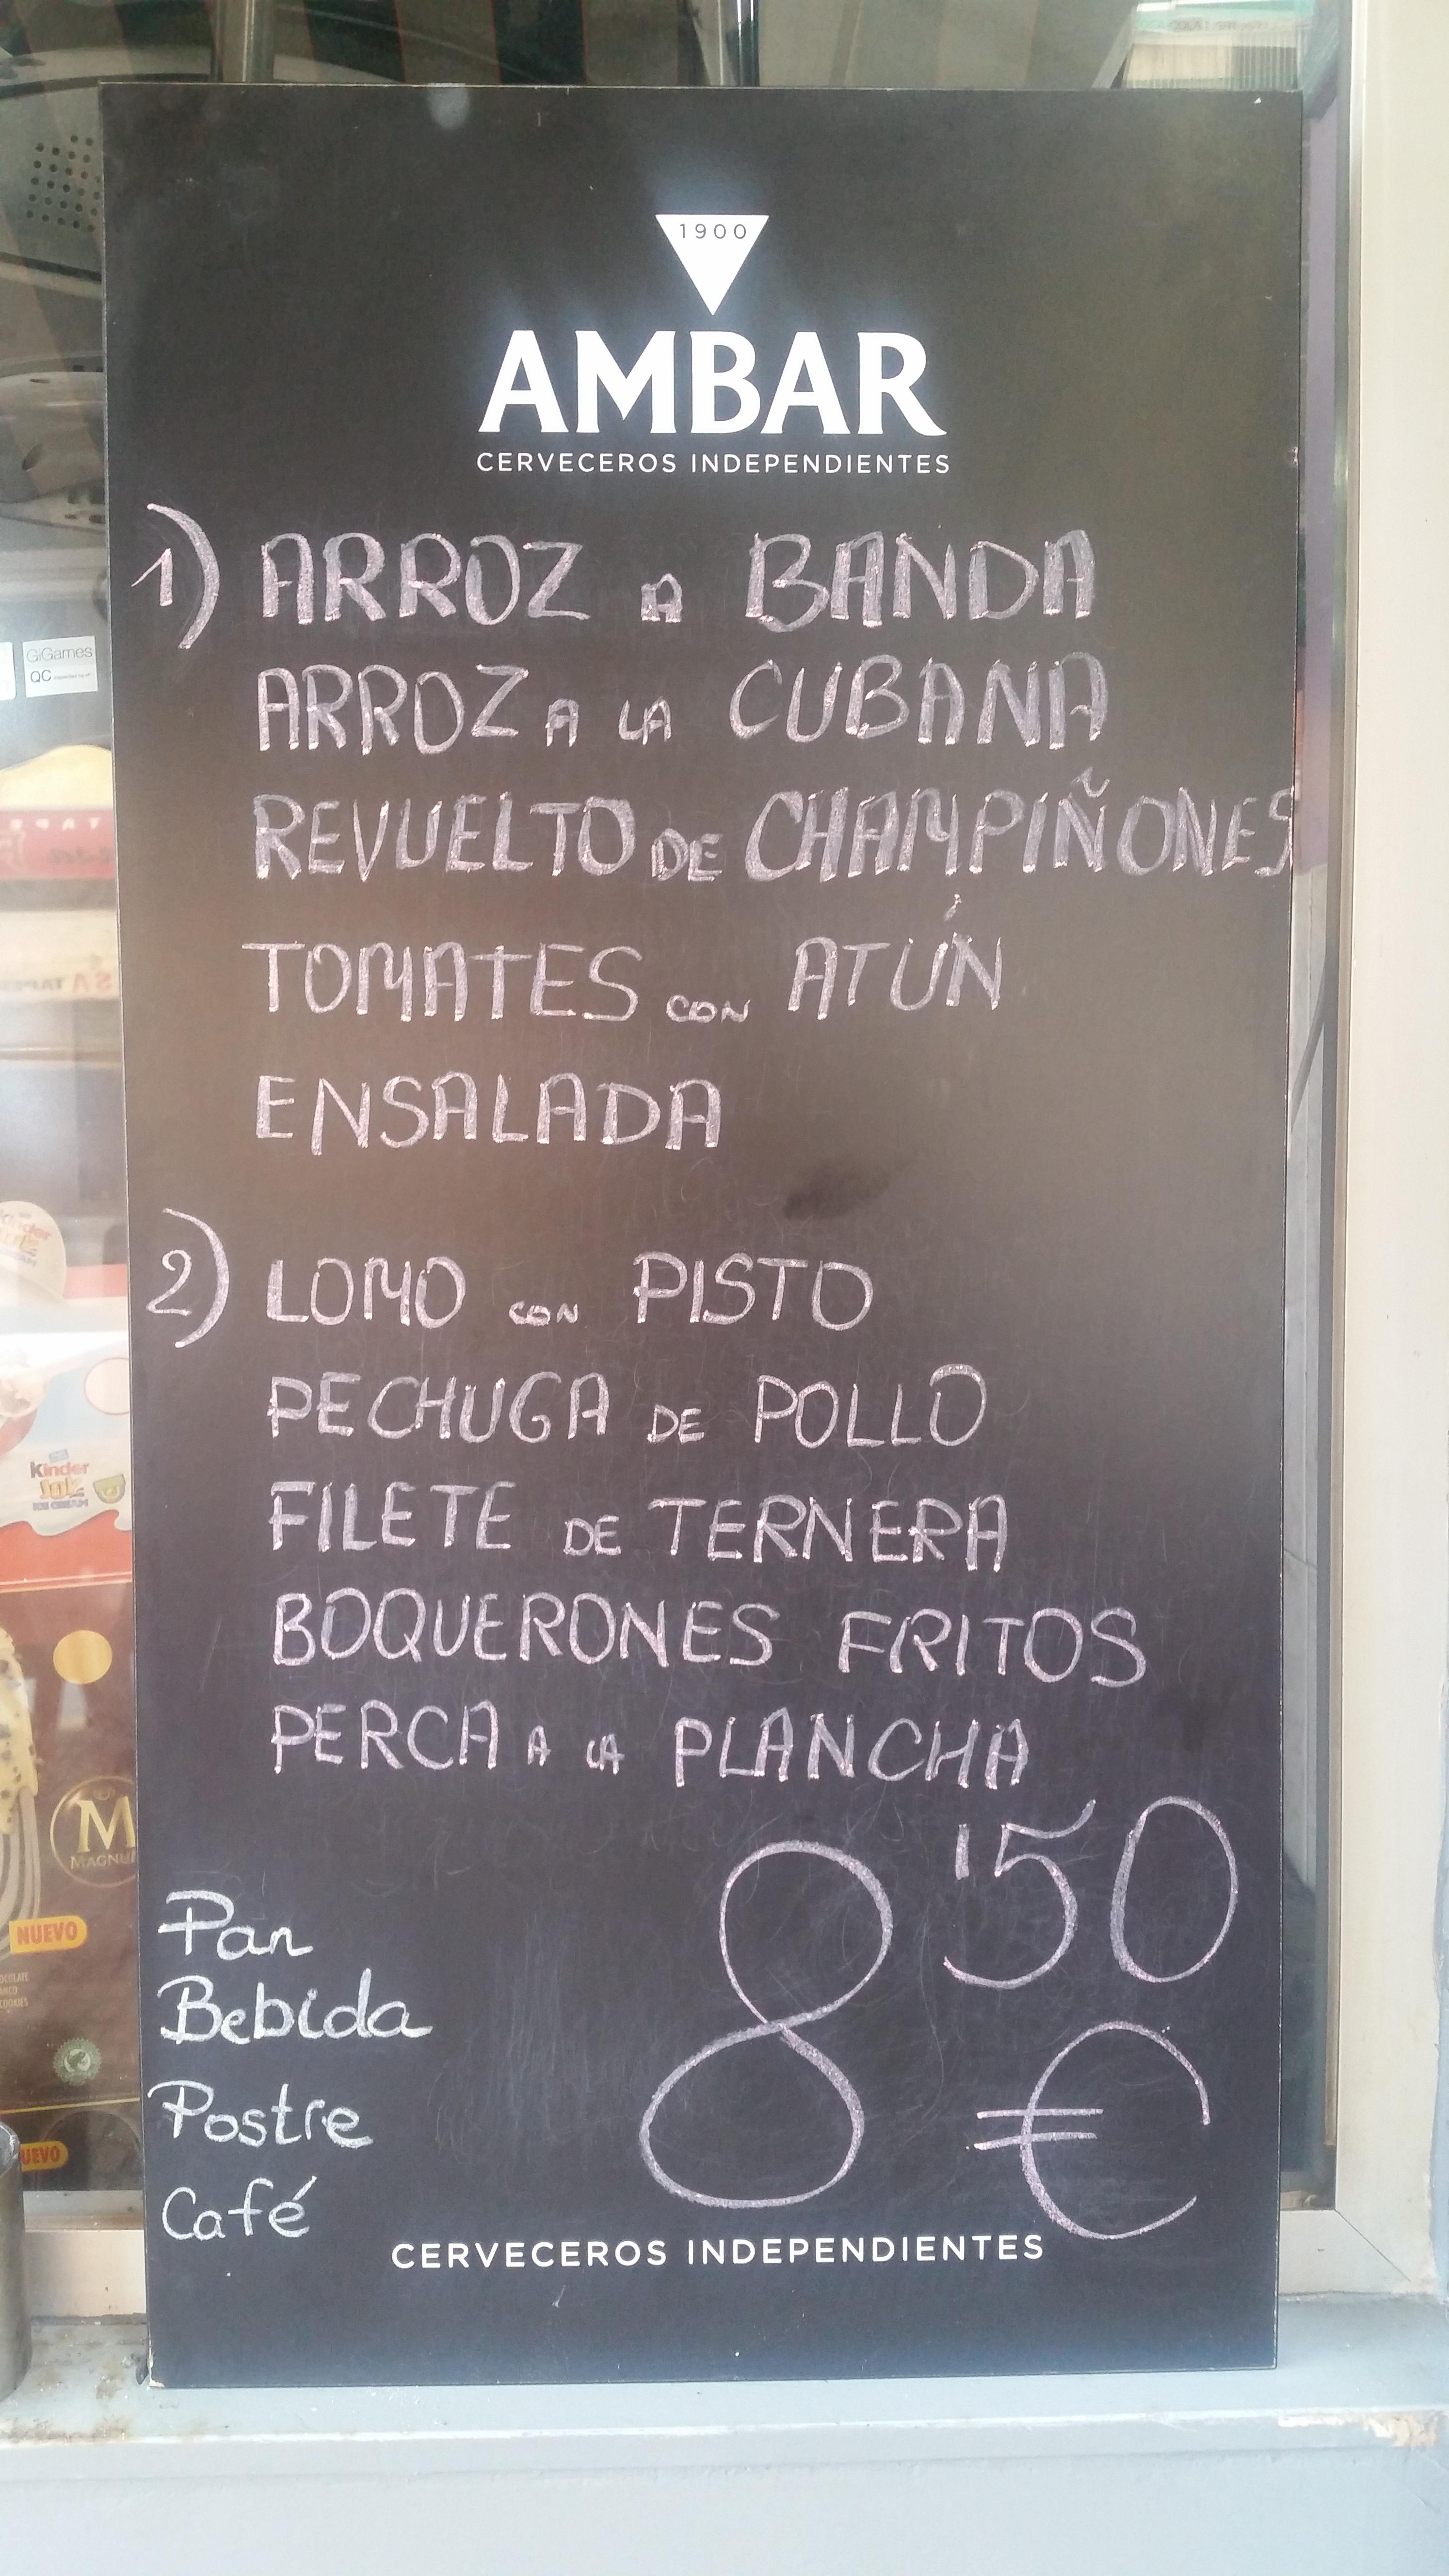 1900
AMBAR
CERVECEROS INDEPENDIENTES
1) ARROZ A BANDA
ARROZ A LA CUBANA
REVUELTO DE CHAMPIÑONES
TOMATES CON ATÚN
ENSALADA
2) LOMO CON PISTO
PECHUGA DE POLLO
FILETE DE TERNERA
BOQUERONES FRITOS
PERCA A LA PLANCHA
8'50 €
Pan
Bebida
Postre
Café
CERVECEROS INDEPENDIENTES
GiGames
QC
kinder
Joy
ICE CREAM
M
MAGNU
NUEVO
UEVO